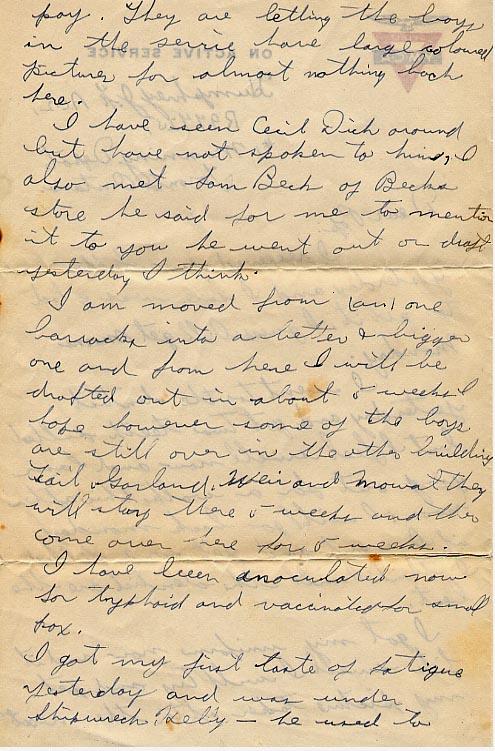 pay. They are letting the boys
in the servic have large coloured
pictures for almost nothing back
here.
I have seen Cecil Dick around
but have not spoken to him, I
also met Sam Beck of Becks
store he said for me to mention
it to you he went out on draft
yesterday I think.
I am moved from (an) one
barracks into a better & bigger
one and from here I will be
drafted out in about 5 weeks I
hope however some of the boys
are still over in the other building
Garland, Weir and Mowat they
will stay there 5 weeks and then
come over here for 5 weeks.
I have been anoculated now
for tryphoid and vaccinated for small
pox.
I got my first taste of fatigue
yesterday and was under
Shipwreck Kelly – he used to
ON ACTIVE SERVICE